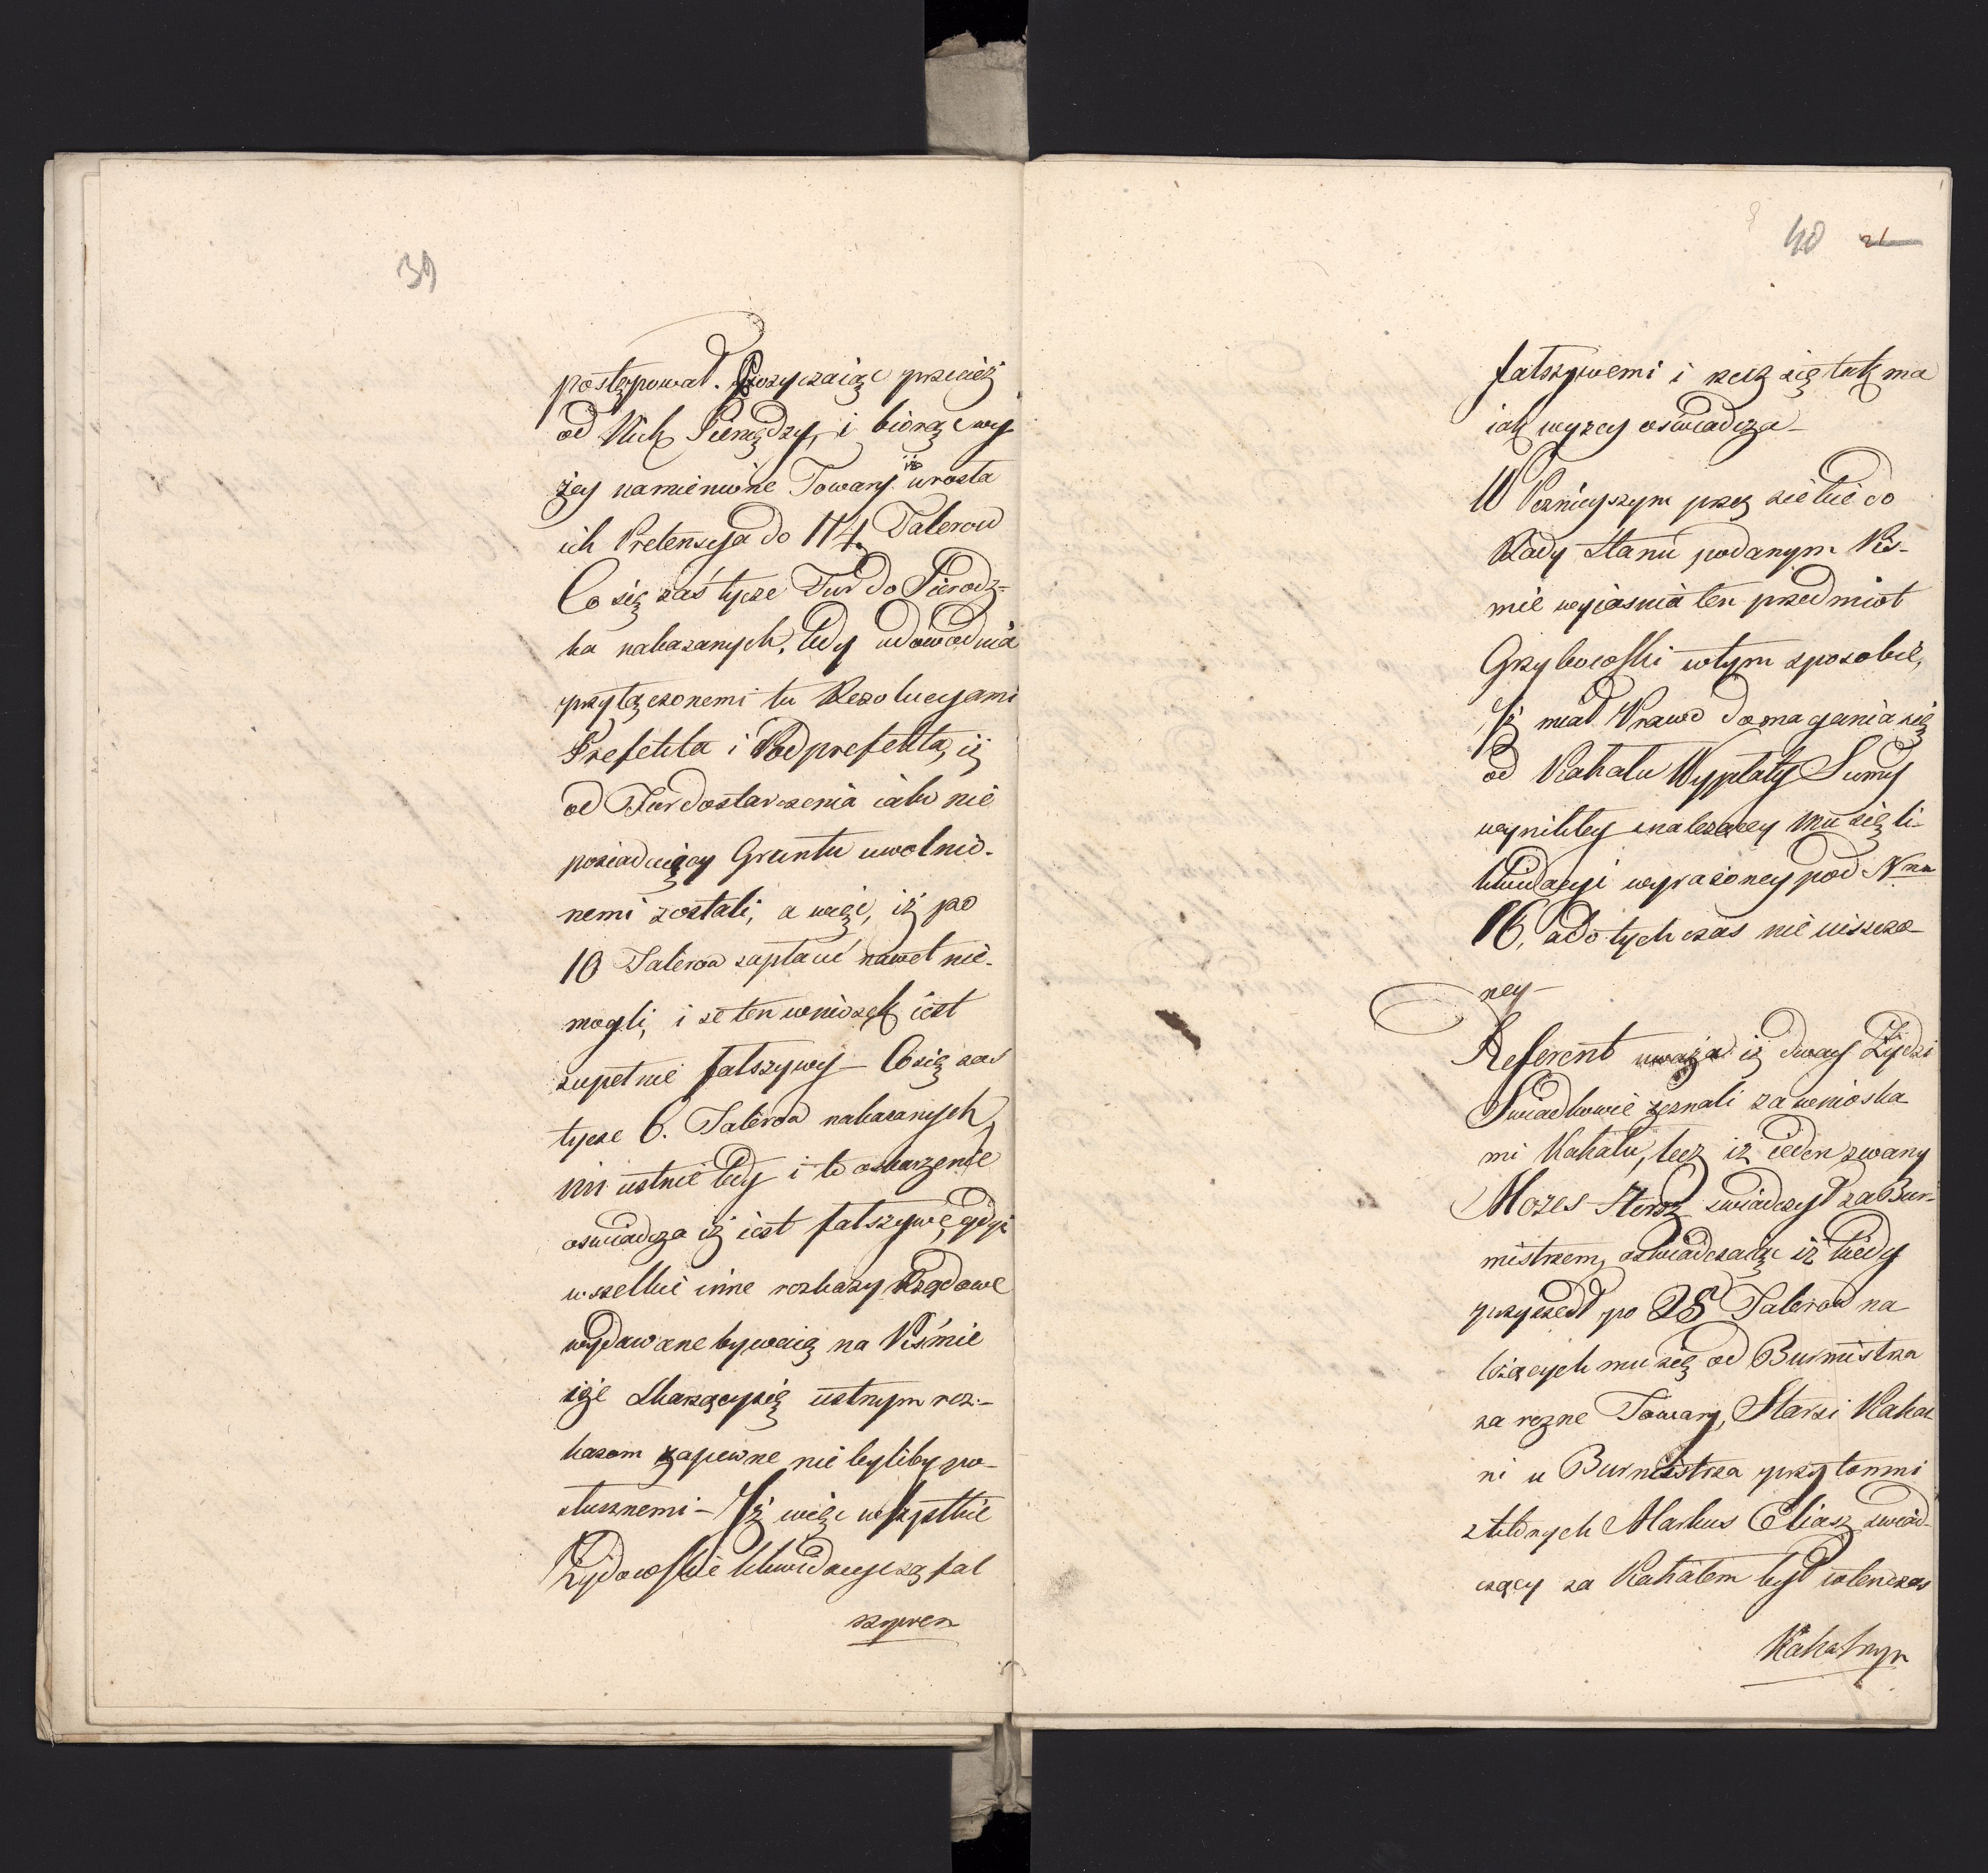 39
postępował. Pożyczaiąc przecież
od Nich Pieniędzy, i biorąc wy
żey namienione Towary iż urosła
ich Pretensyja do 114. Talerow
Co się zaś tycze Fur do Sieradz-
ka nakazanych, tedy udowodnia
przyłączonemi tu Rezolucyjami
Prefekta i Podprefekta, iż
od Fur dostarczenia iako nie
posiadaiący Gruntu uwolnio-
nemi zostali, a więc, iż po
10 Talerow zapłacić nawet nie-
mogli, i że ten wniosek iest
zupełnie fałszywy – Co się zas
tycze 6. Talerow nakazanych
im ustnie tedy i to oskarzenie
oswiadcza iż iest fałszywe, gdyż
wszelkie inne rozkazy Rządowe
wydawane bywaią na Piśmie
iże Skarzący się ustnym roz-
kazom zapewne nie byliby po-
słusznemi – Iż więc wszystkie
Żydowskie likwidacye są fał
szywem
40 21
fałszywemi i rzecz się tak ma
iak wyzey oswiadcza –
W Pozniejszym przez siebie do
Rady Stanu podanym Piś-
mie wyiasnia ten przedmiot
Grzybowski w tym sposobie,
Iż miał Prawo domagania się
od Kahału Wypłaty Summy
wynikłey z należącey mu się li-
kwidacyi wyrażoney pod Nrm
16, a do tychczas nie uiszczo-
ney –
Referent uważa iż dwaj Żydzi
Swiadkowie zeznali za wnioska
mi Kahału, lecz iż ieden zwany
Mozes Hersz swiadczył za Bur-
mistrzem, oswiadczaiąc iż kiedy
przyszedł po 28 Talerow na
leżących mu się od Burmistrza
za rozne Towary, Starsi Kahal
ni u Burmistrza przytomni
z których Markus Eliasz swiad-
czący za Kahałem był wowczas
Kahalnym